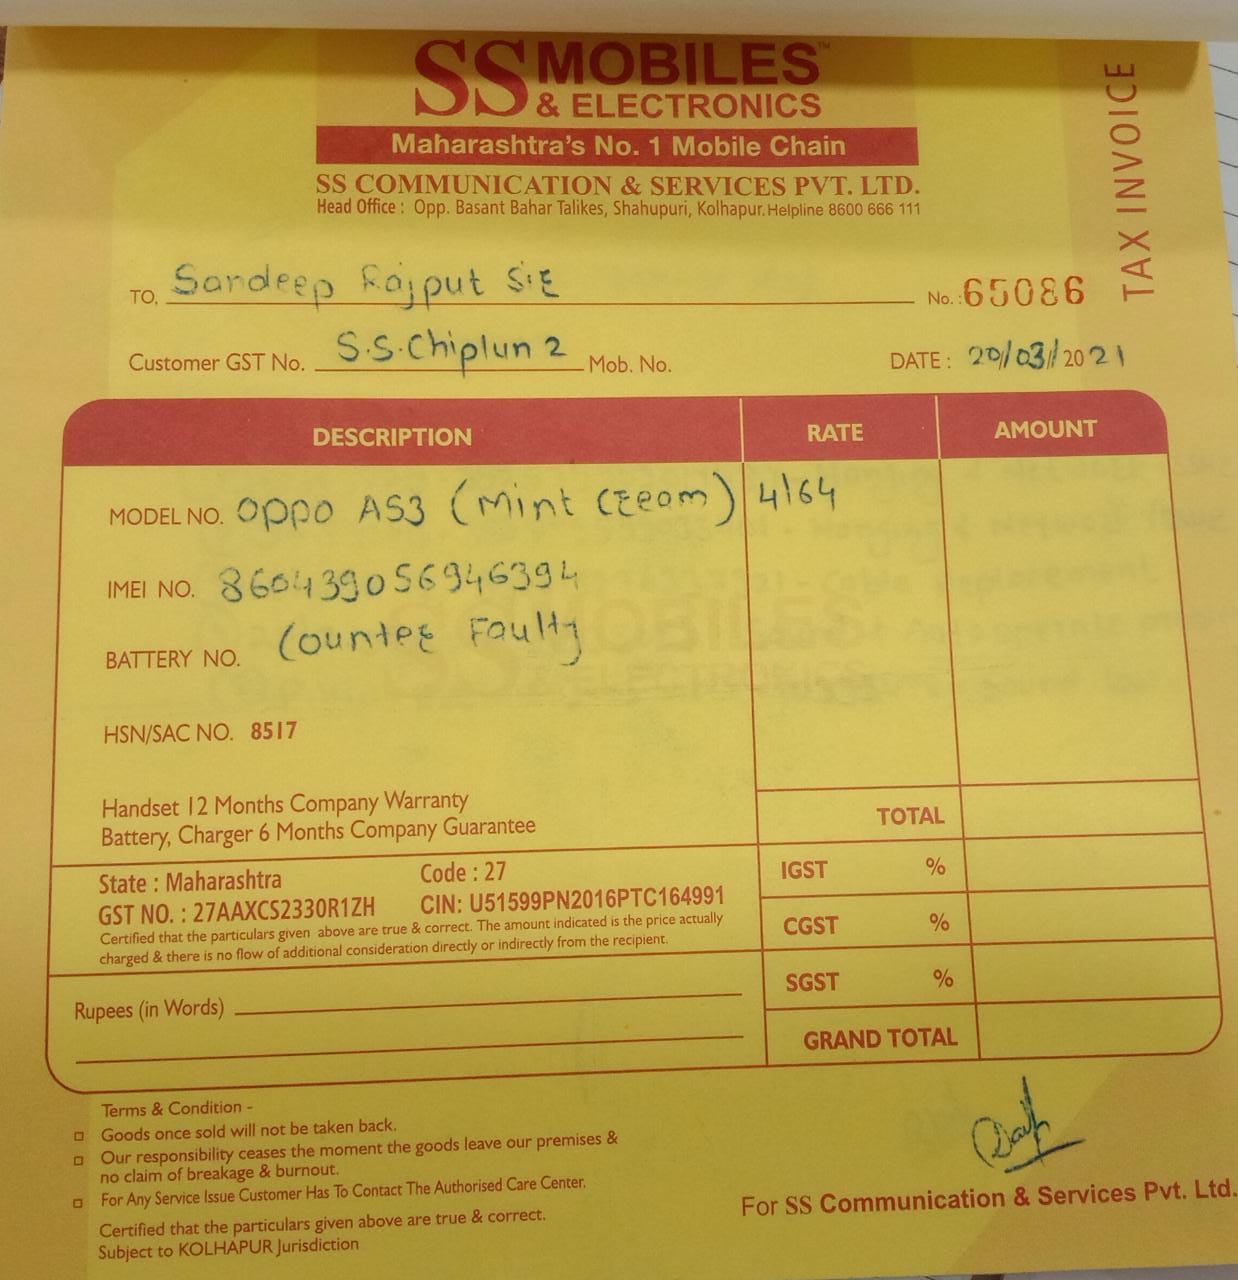 SS MOBILES™
& ELECTRONICS
Maharashtra's No. 1 Mobile Chain
SS COMMUNICATION & SERVICES PVT. LTD.
Head Office : Opp. Basant Bahar Talikes, Shahupuri, Kolhapur. Helpline 8600 666 111
TAX INVOICE
TO, Sandeep Rajput S.E
No. : 65086
Customer GST No. S.S.Chiplun 2 Mob. No.
DATE : 20/03/2021
DESCRIPTION RATE AMOUNT
MODEL NO. Oppo A53 (Mint Cream) 4/64
IMEI NO. 860439056946394
Counter Faulty
BATTERY NO.
HSN/SAC NO. 8517
Handset 12 Months Company Warranty
Battery, Charger 6 Months Company Guarantee
TOTAL
State : Maharashtra Code : 27
GST NO. : 27AAXCS2330R1ZH CIN: U51599PN2016PTC164991
Certified that the particulars given above are true & correct. The amount indicated is the price actually
charged & there is no flow of additional consideration directly or indirectly from the recipient.
IGST %
CGST %
SGST %
GRAND TOTAL
Rupees (in Words)
Terms & Condition -
Goods once sold will not be taken back.
Our responsibility ceases the moment the goods leave our premises &
no claim of breakage & burnout.
For Any Service Issue Customer Has To Contact The Authorised Care Center.
Certified that the particulars given above are true & correct.
Subject to KOLHAPUR Jurisdiction
For SS Communication & Services Pvt. Ltd.